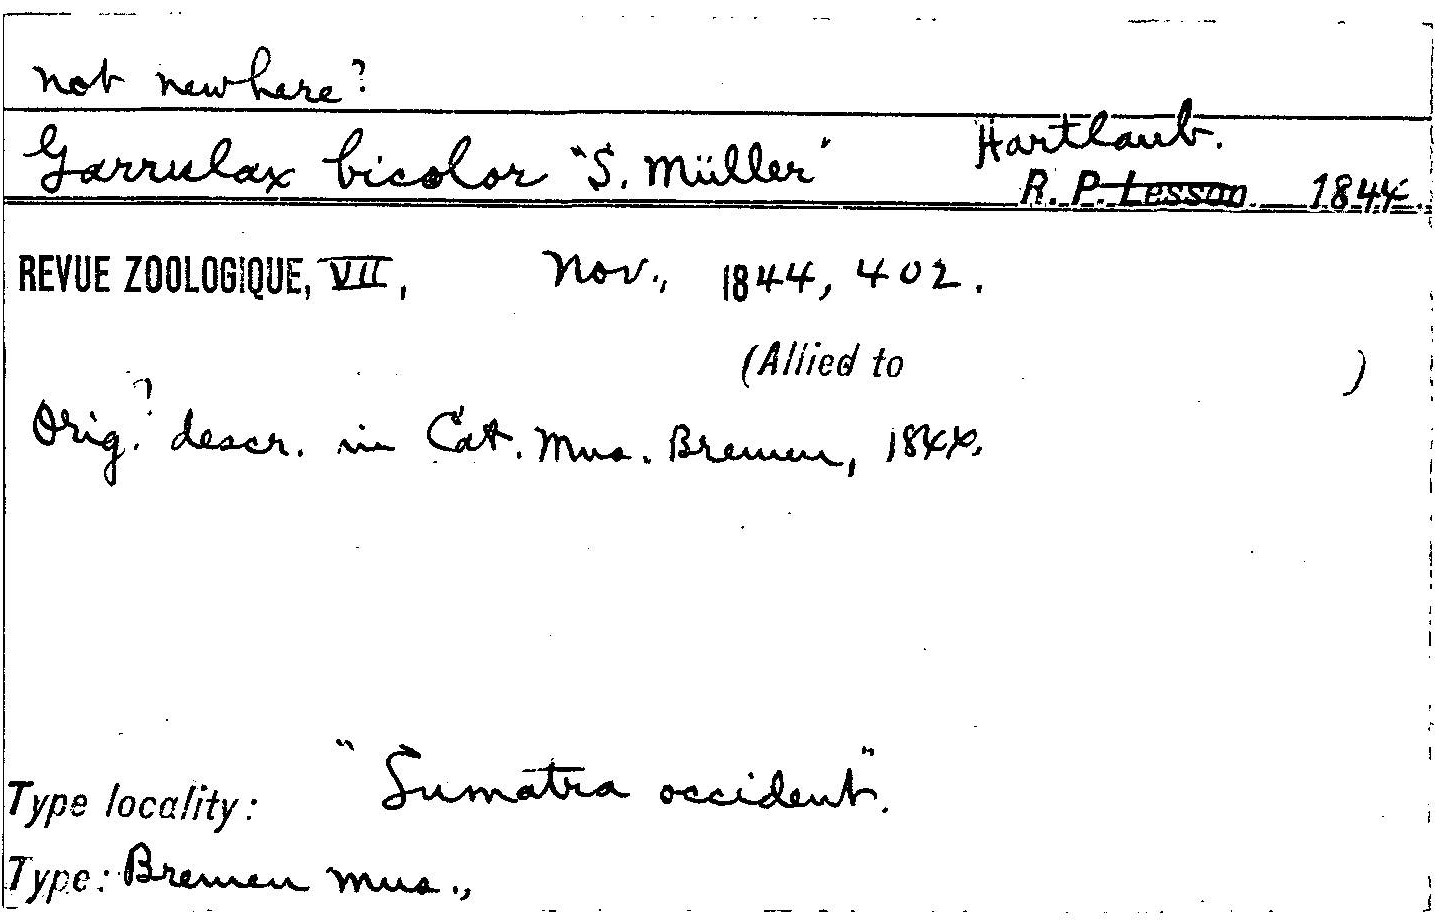 not new here?
Garrulax bicolor "S. Müller" Hartlaub.
R. P. Lesson 1844.
REVUE ZOOLOGIQUE, VII, Nov., 1844, 402.
(Allied to )
Orig.? descr. in Cat. Mus. Bremen, 1844.
Type locality: "Sumatra occident".
Type: Bremen Mus.,